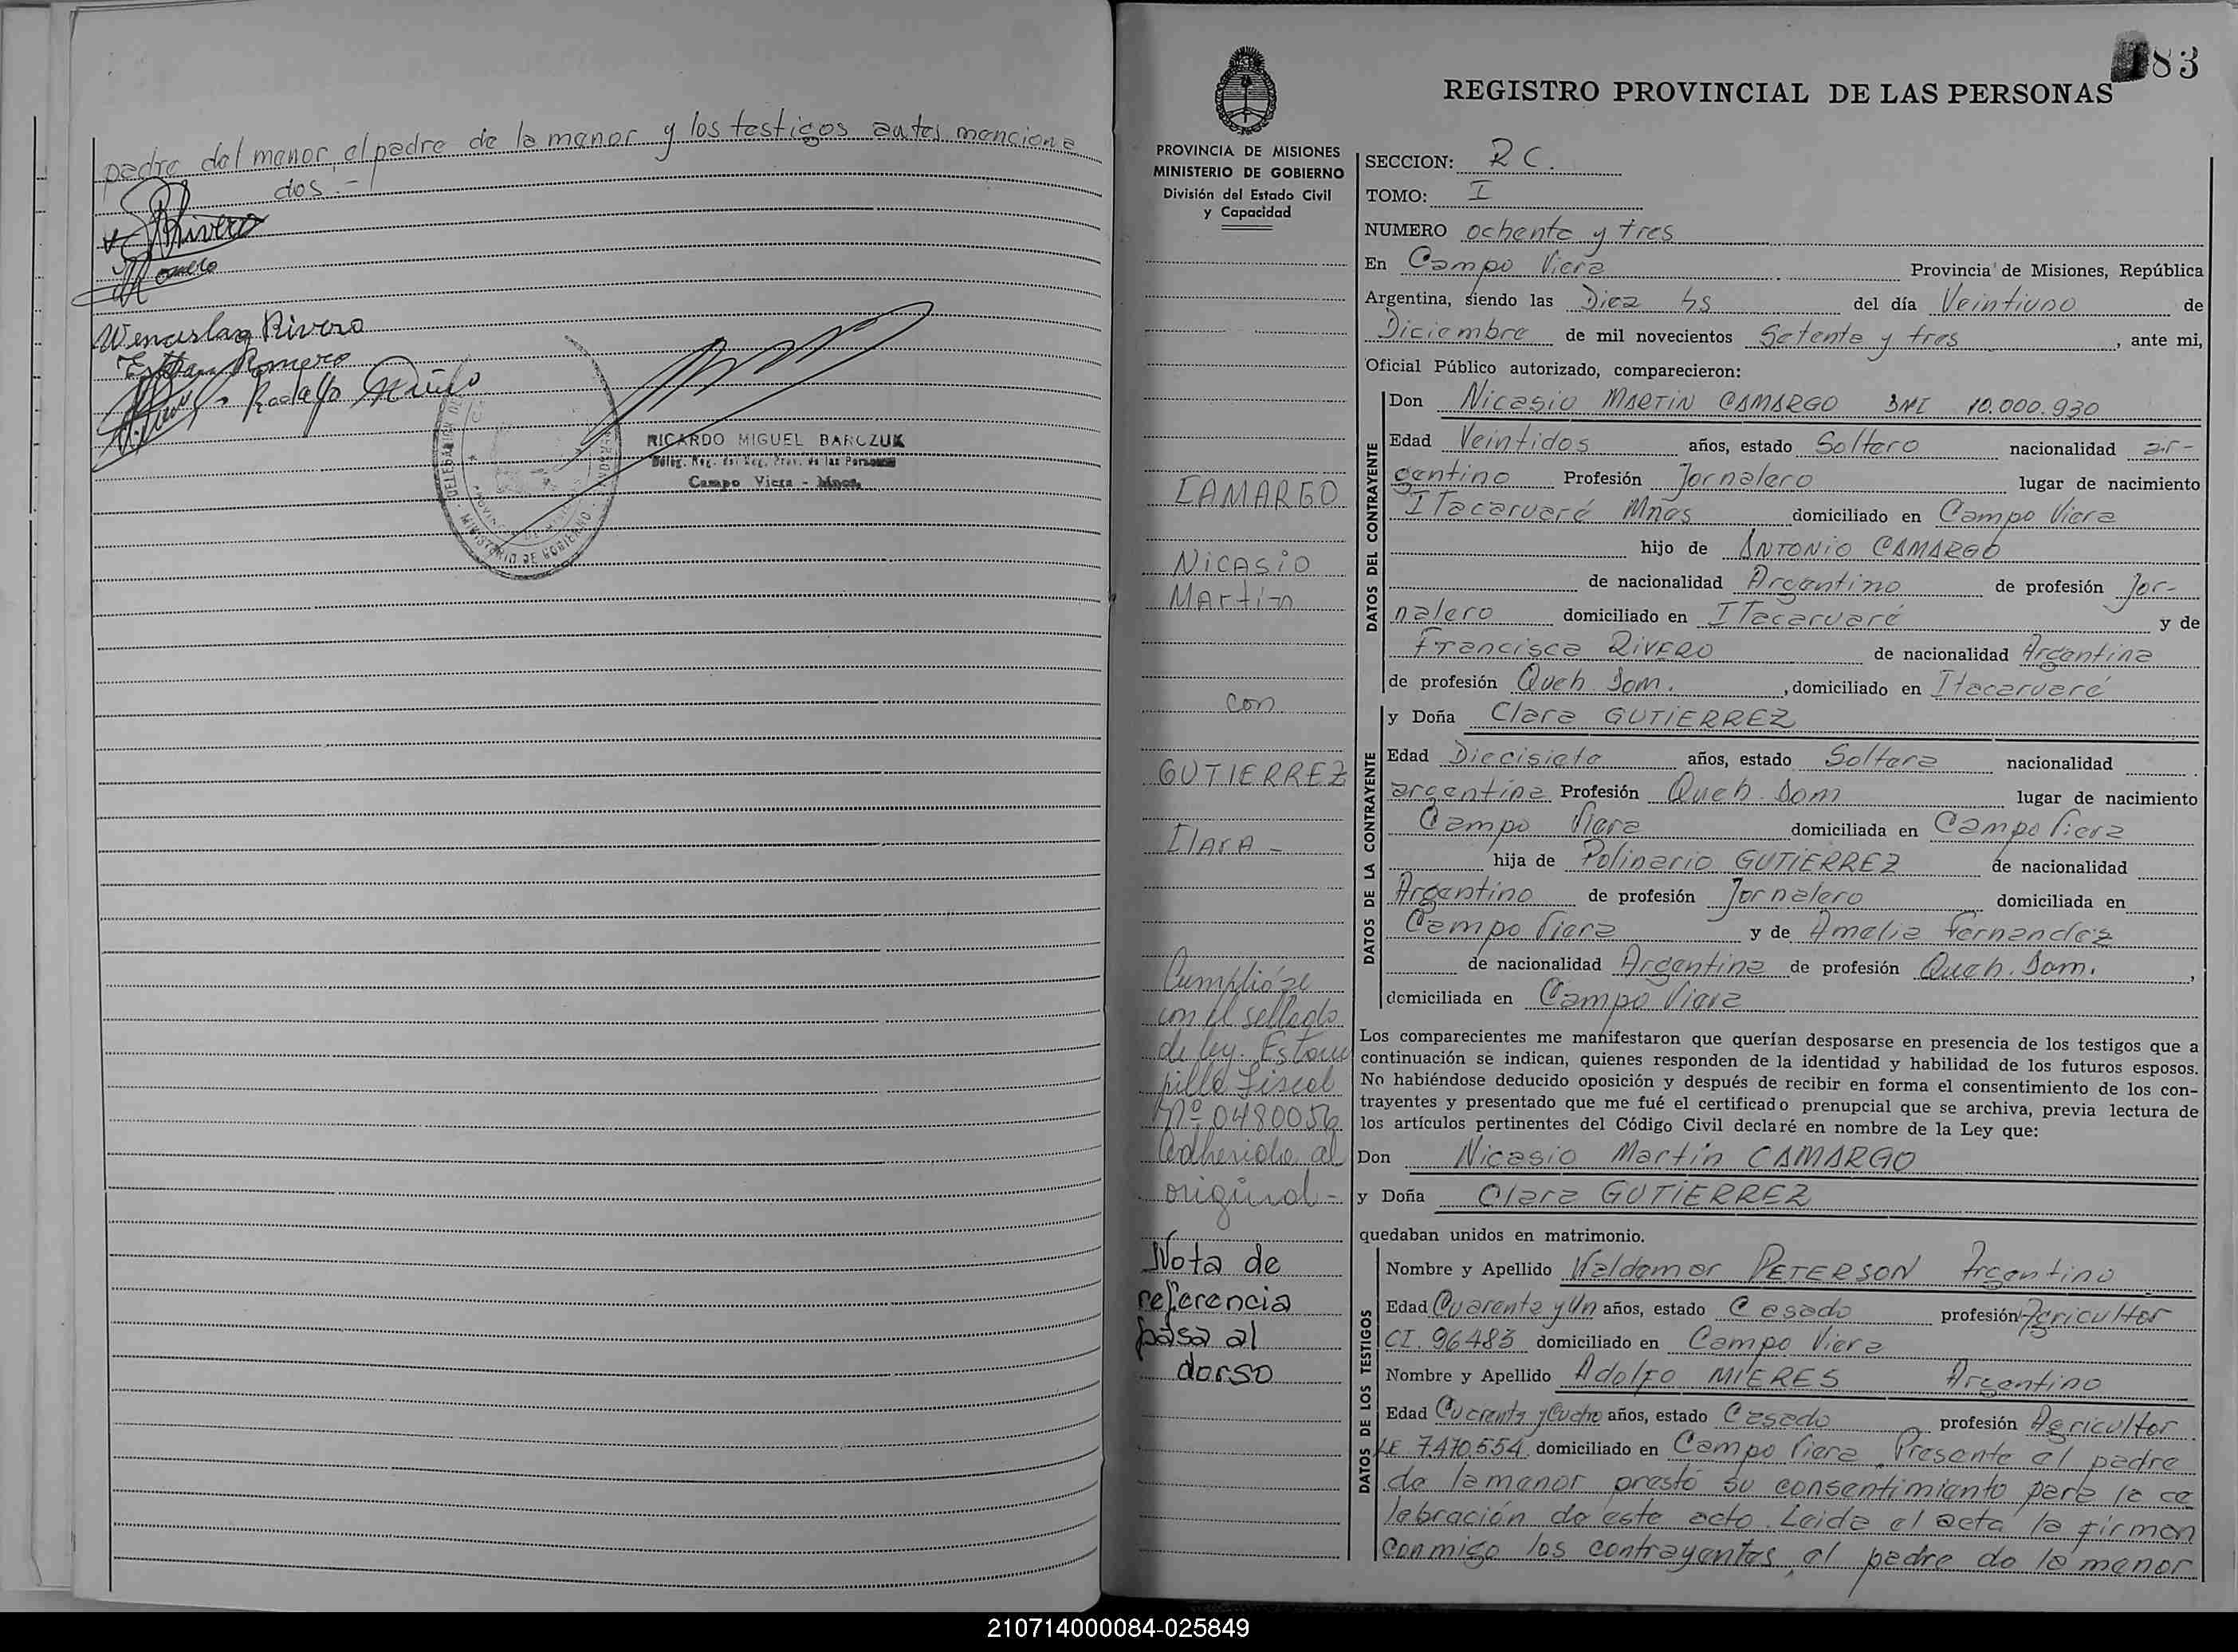 padre del menor, el padre de la menor y los testigos antes menciona
dos.-
Rivero
Romero
Wenceslao Rivero
Esteban Romero
Rodolfo
RICARDO MIGUEL BARCZUK
Deleg. Reg. del Reg. Prov. de las Personas
Campo Viera - Mnes.
MINISTERIO DE GOBIERNO
83
REGISTRO PROVINCIAL DE LAS PERSONAS
PROVINCIA DE MISIONES
MINISTERIO DE GOBIERNO
División del Estado Civil
y Capacidad
CAMARGO
NICASIO
Martin
con
GUTIERREZ
Clara -
Cumplióse
con el sellado
de ley. Estam
pilla Fiscal
Nº 0480056
Adherida al
original -
Nota de
referencia
pasa al
dorso
SECCION: R C.
TOMO: I
NUMERO ochenta y tres
En Campo Viera Provincia de Misiones, República
Argentina, siendo las Diez hs del día Veintiuno de
Diciembre de mil novecientos Setenta y tres, ante mi,
Oficial Público autorizado, comparecieron:
DATOS DEL CONTRAYENTE
Don Nicasio MARTIN CAMARGO DNI 10.000.930
Edad Veintidos años, estado Soltero nacionalidad ar-
gentino Profesión Jornalero lugar de nacimiento
ITacaruaré Mnes domiciliado en Campo Viera
hijo de ANTONIO CAMARGO
de nacionalidad Argentino de profesión Jor-
nalero domiciliado en ITacaruaré y de
Francisca RIVERO de nacionalidad Argentina
de profesión Queh. Dom., domiciliado en Itacaruaré
DATOS DE LA CONTRAYENTE
y Doña Clara GUTIERREZ
Edad Diecisiete años, estado Soltera nacionalidad
argentina Profesión Queh. Dom lugar de nacimiento
Campo Viera domiciliada en Campo Viera
hija de Polinario GUTIERREZ de nacionalidad
Argentino de profesión Jornalero domiciliada en
Campo Viera y de Amelia Fernandez
de nacionalidad Argentina de profesión Queh. Dom.,
domiciliada en Campo Viera
Los comparecientes me manifestaron que querían desposarse en presencia de los testigos que a
continuación se indican, quienes responden de la identidad y habilidad de los futuros esposos.
No habiéndose deducido oposición y después de recibir en forma el consentimiento de los con-
trayentes y presentado que me fué el certificado prenupcial que se archiva, previa lectura de
los artículos pertinentes del Código Civil declaré en nombre de la Ley que:
Don Nicasio Martin CAMARGO
y Doña Clara GUTIERREZ
quedaban unidos en matrimonio.
DATOS DE LOS TESTIGOS
Nombre y Apellido Valdemar PETERSON Argentino
Edad Cuarenta y Un años, estado Casado profesión Agricultor
CI. 96483 domiciliado en Campo Viera
Nombre y Apellido Adolfo MIERES Argentino
Edad Cuarenta y Cuatro años, estado Casado profesión Agricultor
LE 7.470.554 domiciliado en Campo Viera. Presente el padre
de la menor prestó su consentimiento para la ce
lebración de este acto. Leida el acta la firman
conmigo los contrayentes, el padre de la menor
210714000084-025849